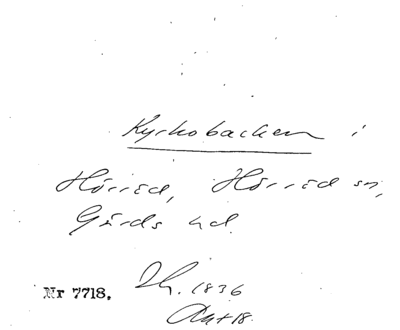 Kyrkobacken i
Hörröd, Hörröd sn,
Gärds hd.
Nr 7718. 1836